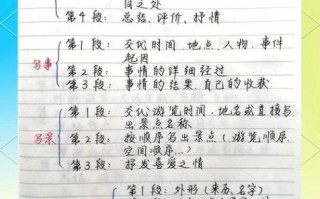 之处
第4段：总结、评价、抒情
写事
第1段：交代时间、地点、人物、事件
起因
第2段：事情的详细经过
第3段：事情的结果，自己的收获
写景
第1段：交代游览时间，地名或直接写
出景点名称
第2段：按顺序写出景点（游览顺序，
空间顺序…）
第3段：抒发喜爱之情
第1段：外形（来历、名字）